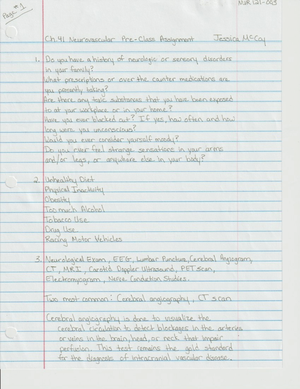 Page #1
NUR 121-003
Ch. 41 Neurovascular Pre-Class Assignment Jessica McCoy
1. Do you have a history of neurologic or sensory disorders
in your family?
What prescriptions or over the center medications are
you presently taking?
Are there any toxic substances that you have been exposed
to at your workplace or in your home?
Have you ever blacked out? If yes, how often and how
long were you unconscious?
Would you ever consider yourself moody?
Do you ever feel strange sensations in your arms
and/or legs, or anywhere else in your body?
2. Unhealthy Diet
Physical Inactivity
Obesity
Too much Alcohol
Tobacco Use
Drug Use
Racing Motor Vehicles
3. Neurological Exam, EEG, Lumbar Puncture, Cerebral Angiogram,
CT, MRI, Carotid Doppler Ultrasound, PET scan,
Electromyogram, Nerve Conduction Studies.
Two most common: Cerebral angiography, CT scan
Cerebral angiography is done to visualize the
cerebral circulation to detect blockages in the arteries
or veins in the brain, head, or neck that impair
perfusion. This test remains the gold standard
for the diagnosis of intracranial vascular disease.